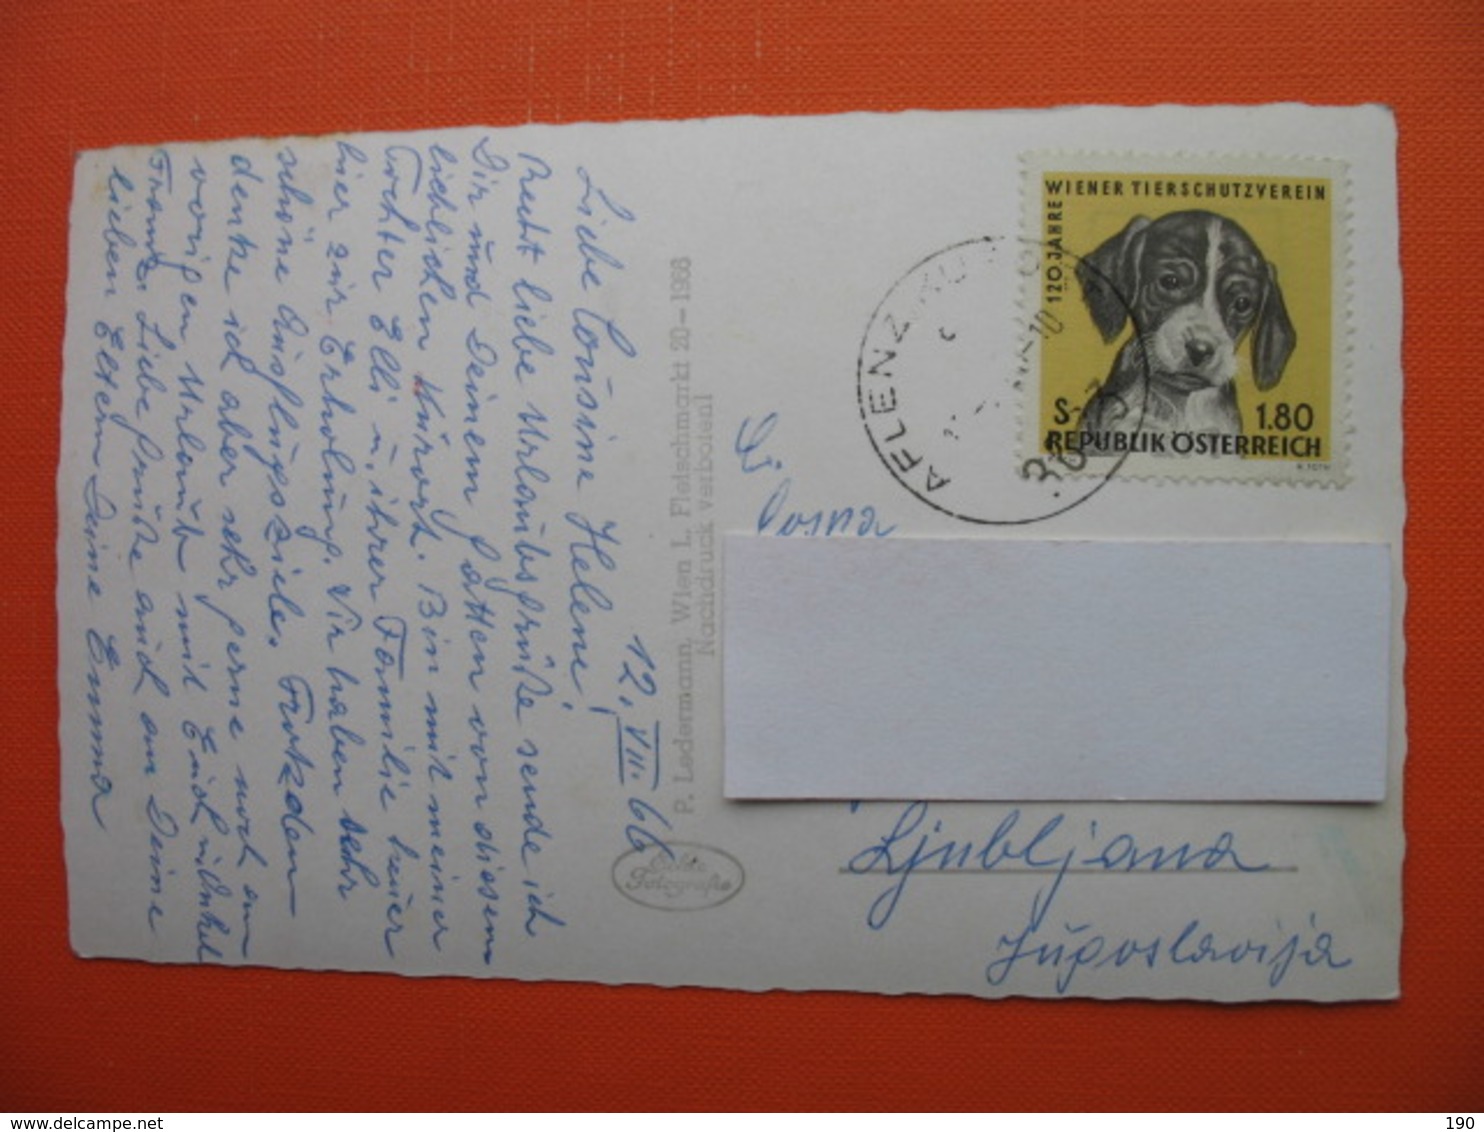 12. VII. 66
Liebe Cousine Helene!
Recht liebe Urlaubsgrüße sende ich
Dir und Deinem Gatten von diesem
lieblichen Kurort. Bin mit meiner
Tochter Elli u. ihrer Familie heuer
hier zur Erholung. Wir haben sehr
schöne Ausflugsziele. Trotzdem
denke ich aber sehr gerne noch an
vorigen Urlaub mit Euch und
Liebe Grüße auch an Deine
lieben Eltern Deine Emma
P. Ledermann, Wien I., Fleischmarkt 20-1966
Nachdruck verboten!
Echte
Fotografie
WIENER TIERSCHUTZVEREIN
120 JAHRE
S 1.80
REPUBLIK ÖSTERREICH
AFLENZ KU
Ljubljana
Jugoslavija
190